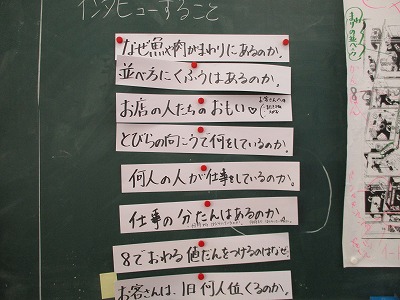 インタビューすること
なぜ魚や肉がまわりにあるのか。
並べ方にくふうはあるのか。
お店の人たちのおもい♡
とびらの向こうで何をしているのか。
何人の人が仕事をしているのか。
仕事の分たんはあるのか。
8でおわる値だんをつけるのはなぜ。
お客さんは、1日何人位くるのか。